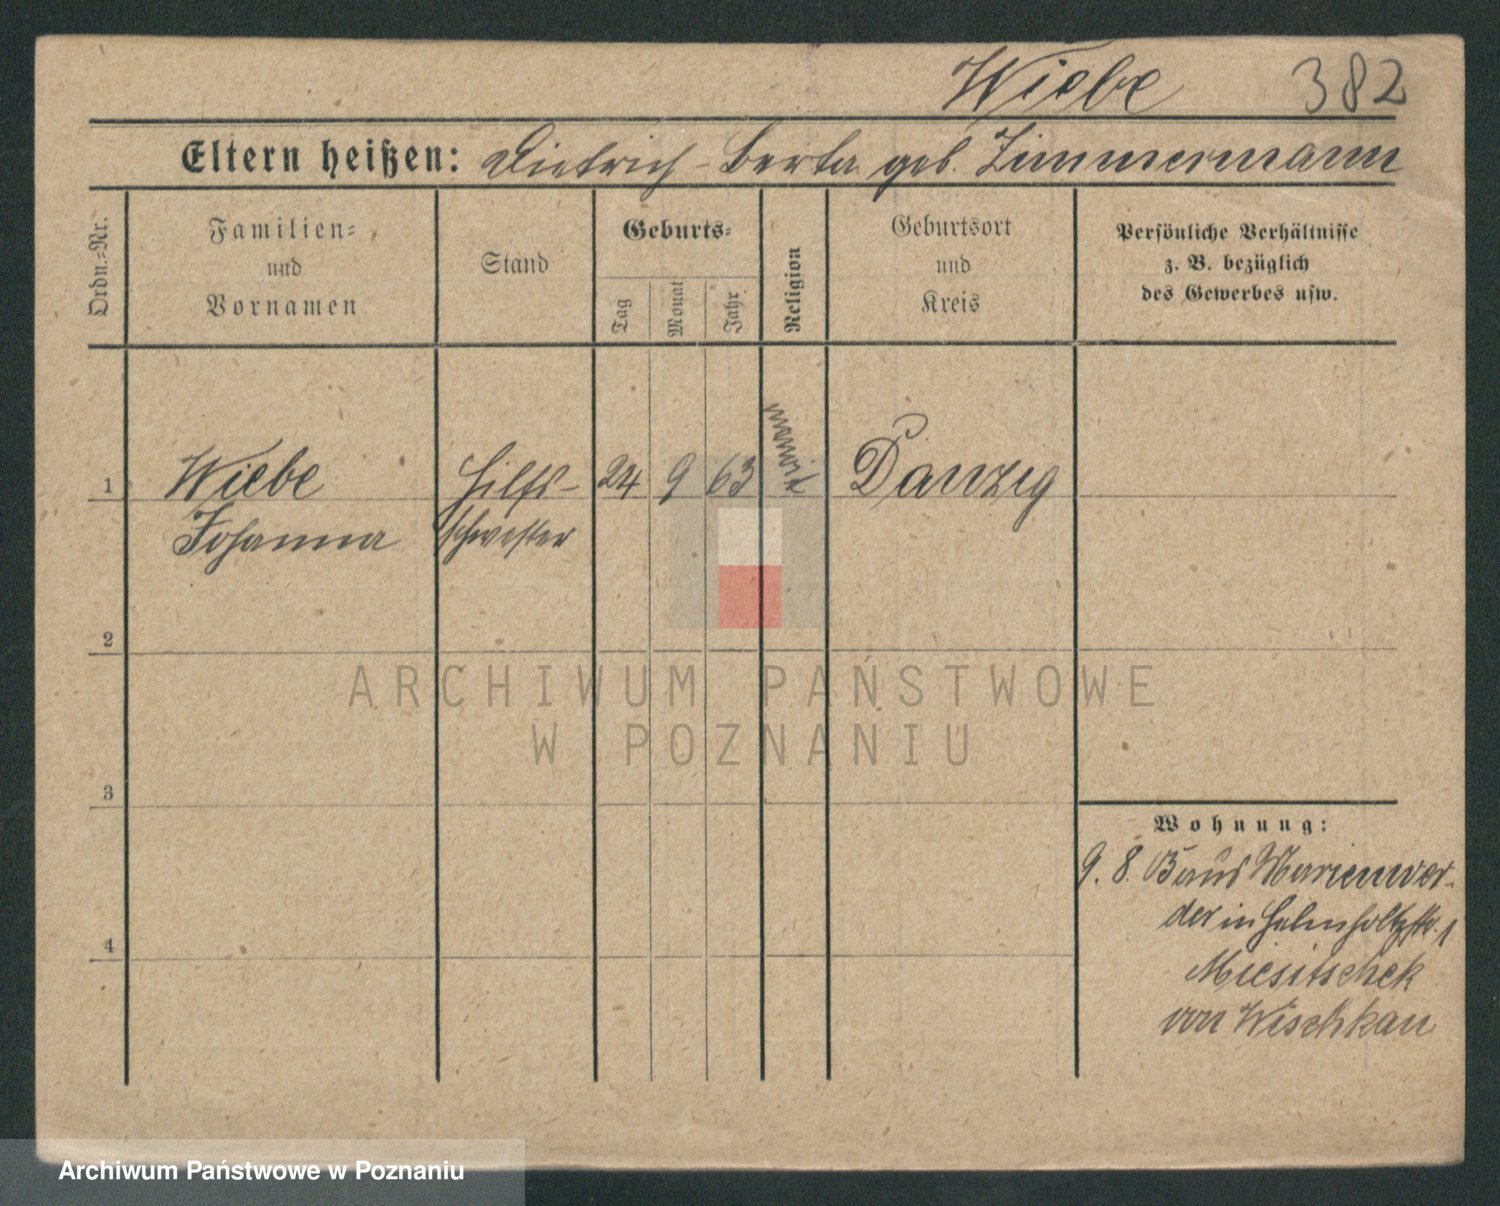 Wiebe 382
Eltern heißen: Dietrich - Berta geb. Zimmermann
Ordn.-Nr.
Familien-
und
Vornamen
Stand
Geburts-
Tag
Monat
Jahr
Religion
Geburtsort
und
Kreis
Persönliche Verhältnisse
z. B. bezüglich
des Gewerbes usw.
1 Wiebe Hilfs- 24 9 63 Danzig
Johanna schwester
2
3
4
Wohnung:
9. 8. 13 aus Marienwer-
der in Helmholtzstr. 1
Miesitschek
von Wischkau
ARCHIWUM PAŃSTWOWE
W POZNANIU
Archiwum Państwowe w Poznaniu